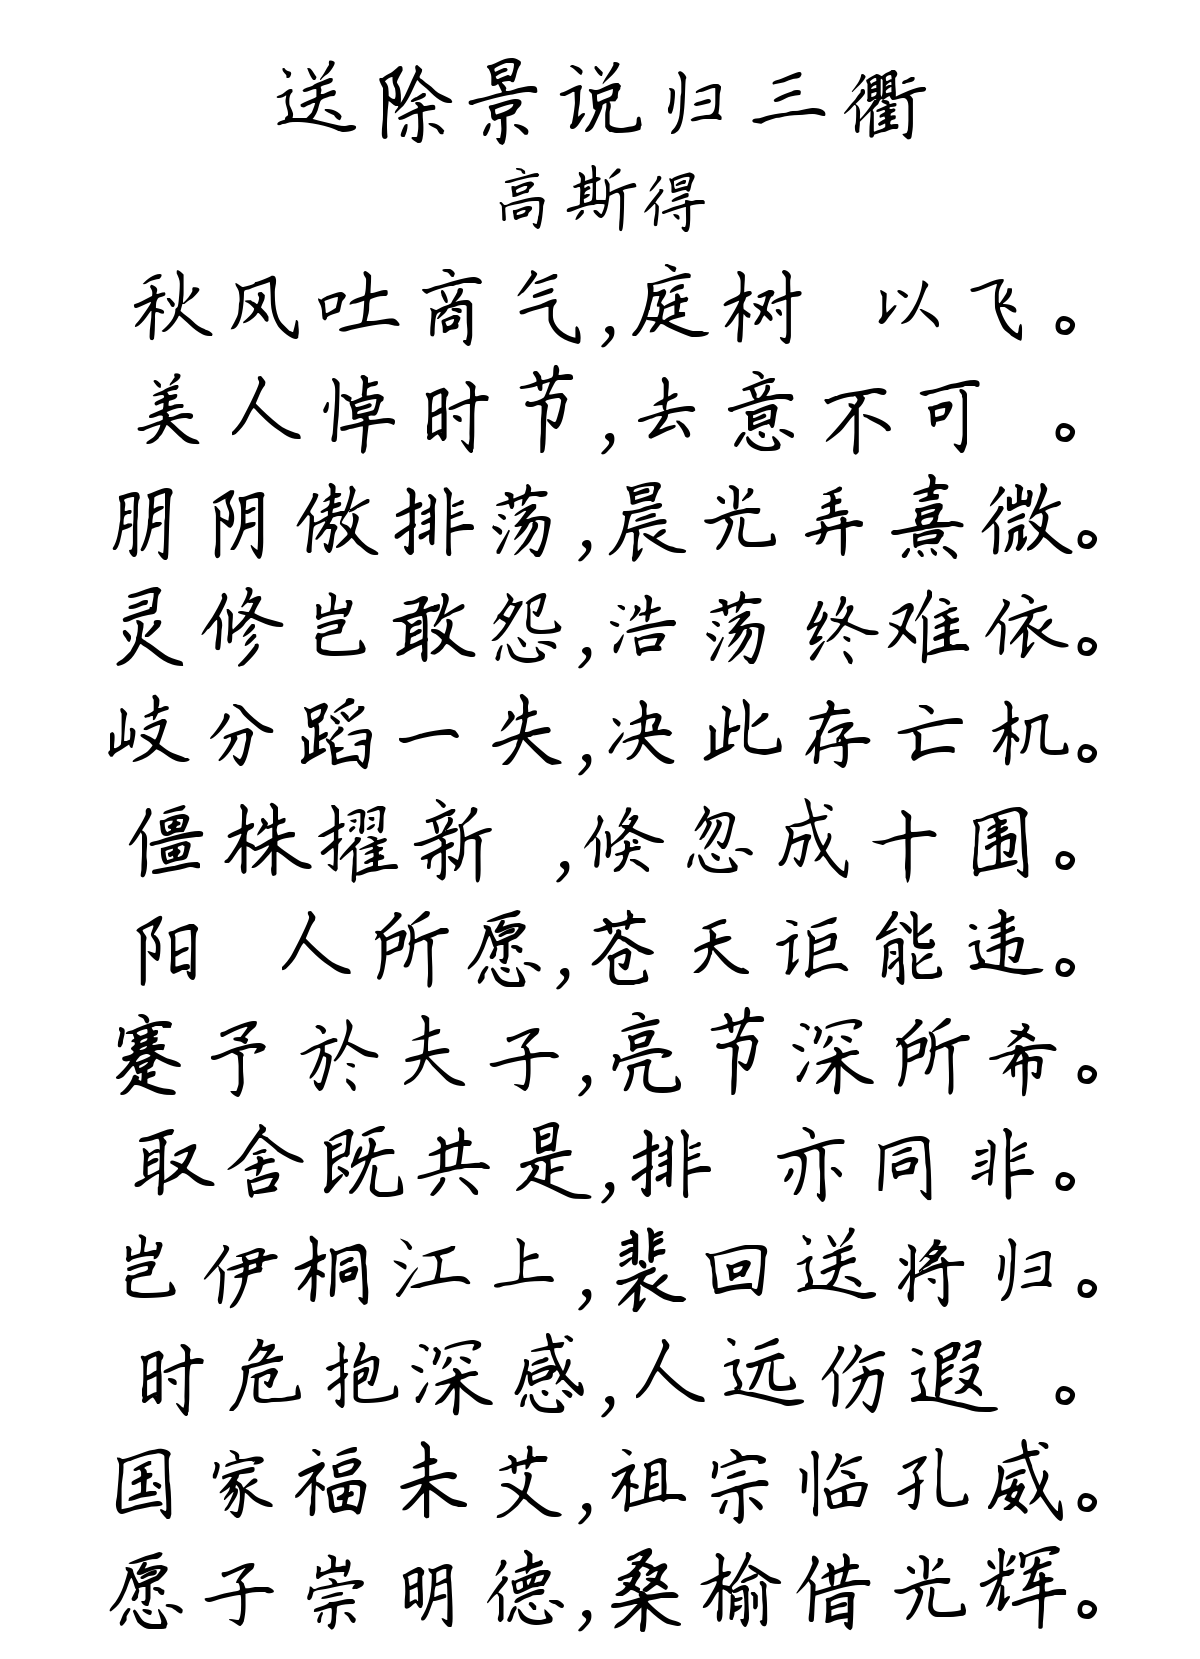 送除景说归三衢
高斯得
秋风吐商气,庭树 以飞。
美人悼时节,去意不可 。
朋阴傲排荡,晨光弄熹微。
灵修岂敢怨,浩荡终难依。
歧分蹈一失,决此存亡机。
僵株擢新 ,倏忽成十围。
阳 人所愿,苍天讵能违。
蹇予於夫子,亮节深所希。
取舍既共是,排 亦同非。
岂伊桐江上,裴回送将归。
时危抱深感,人远伤遐 。
国家福未艾,祖宗临孔威。
愿子崇明德,桑榆借光辉。